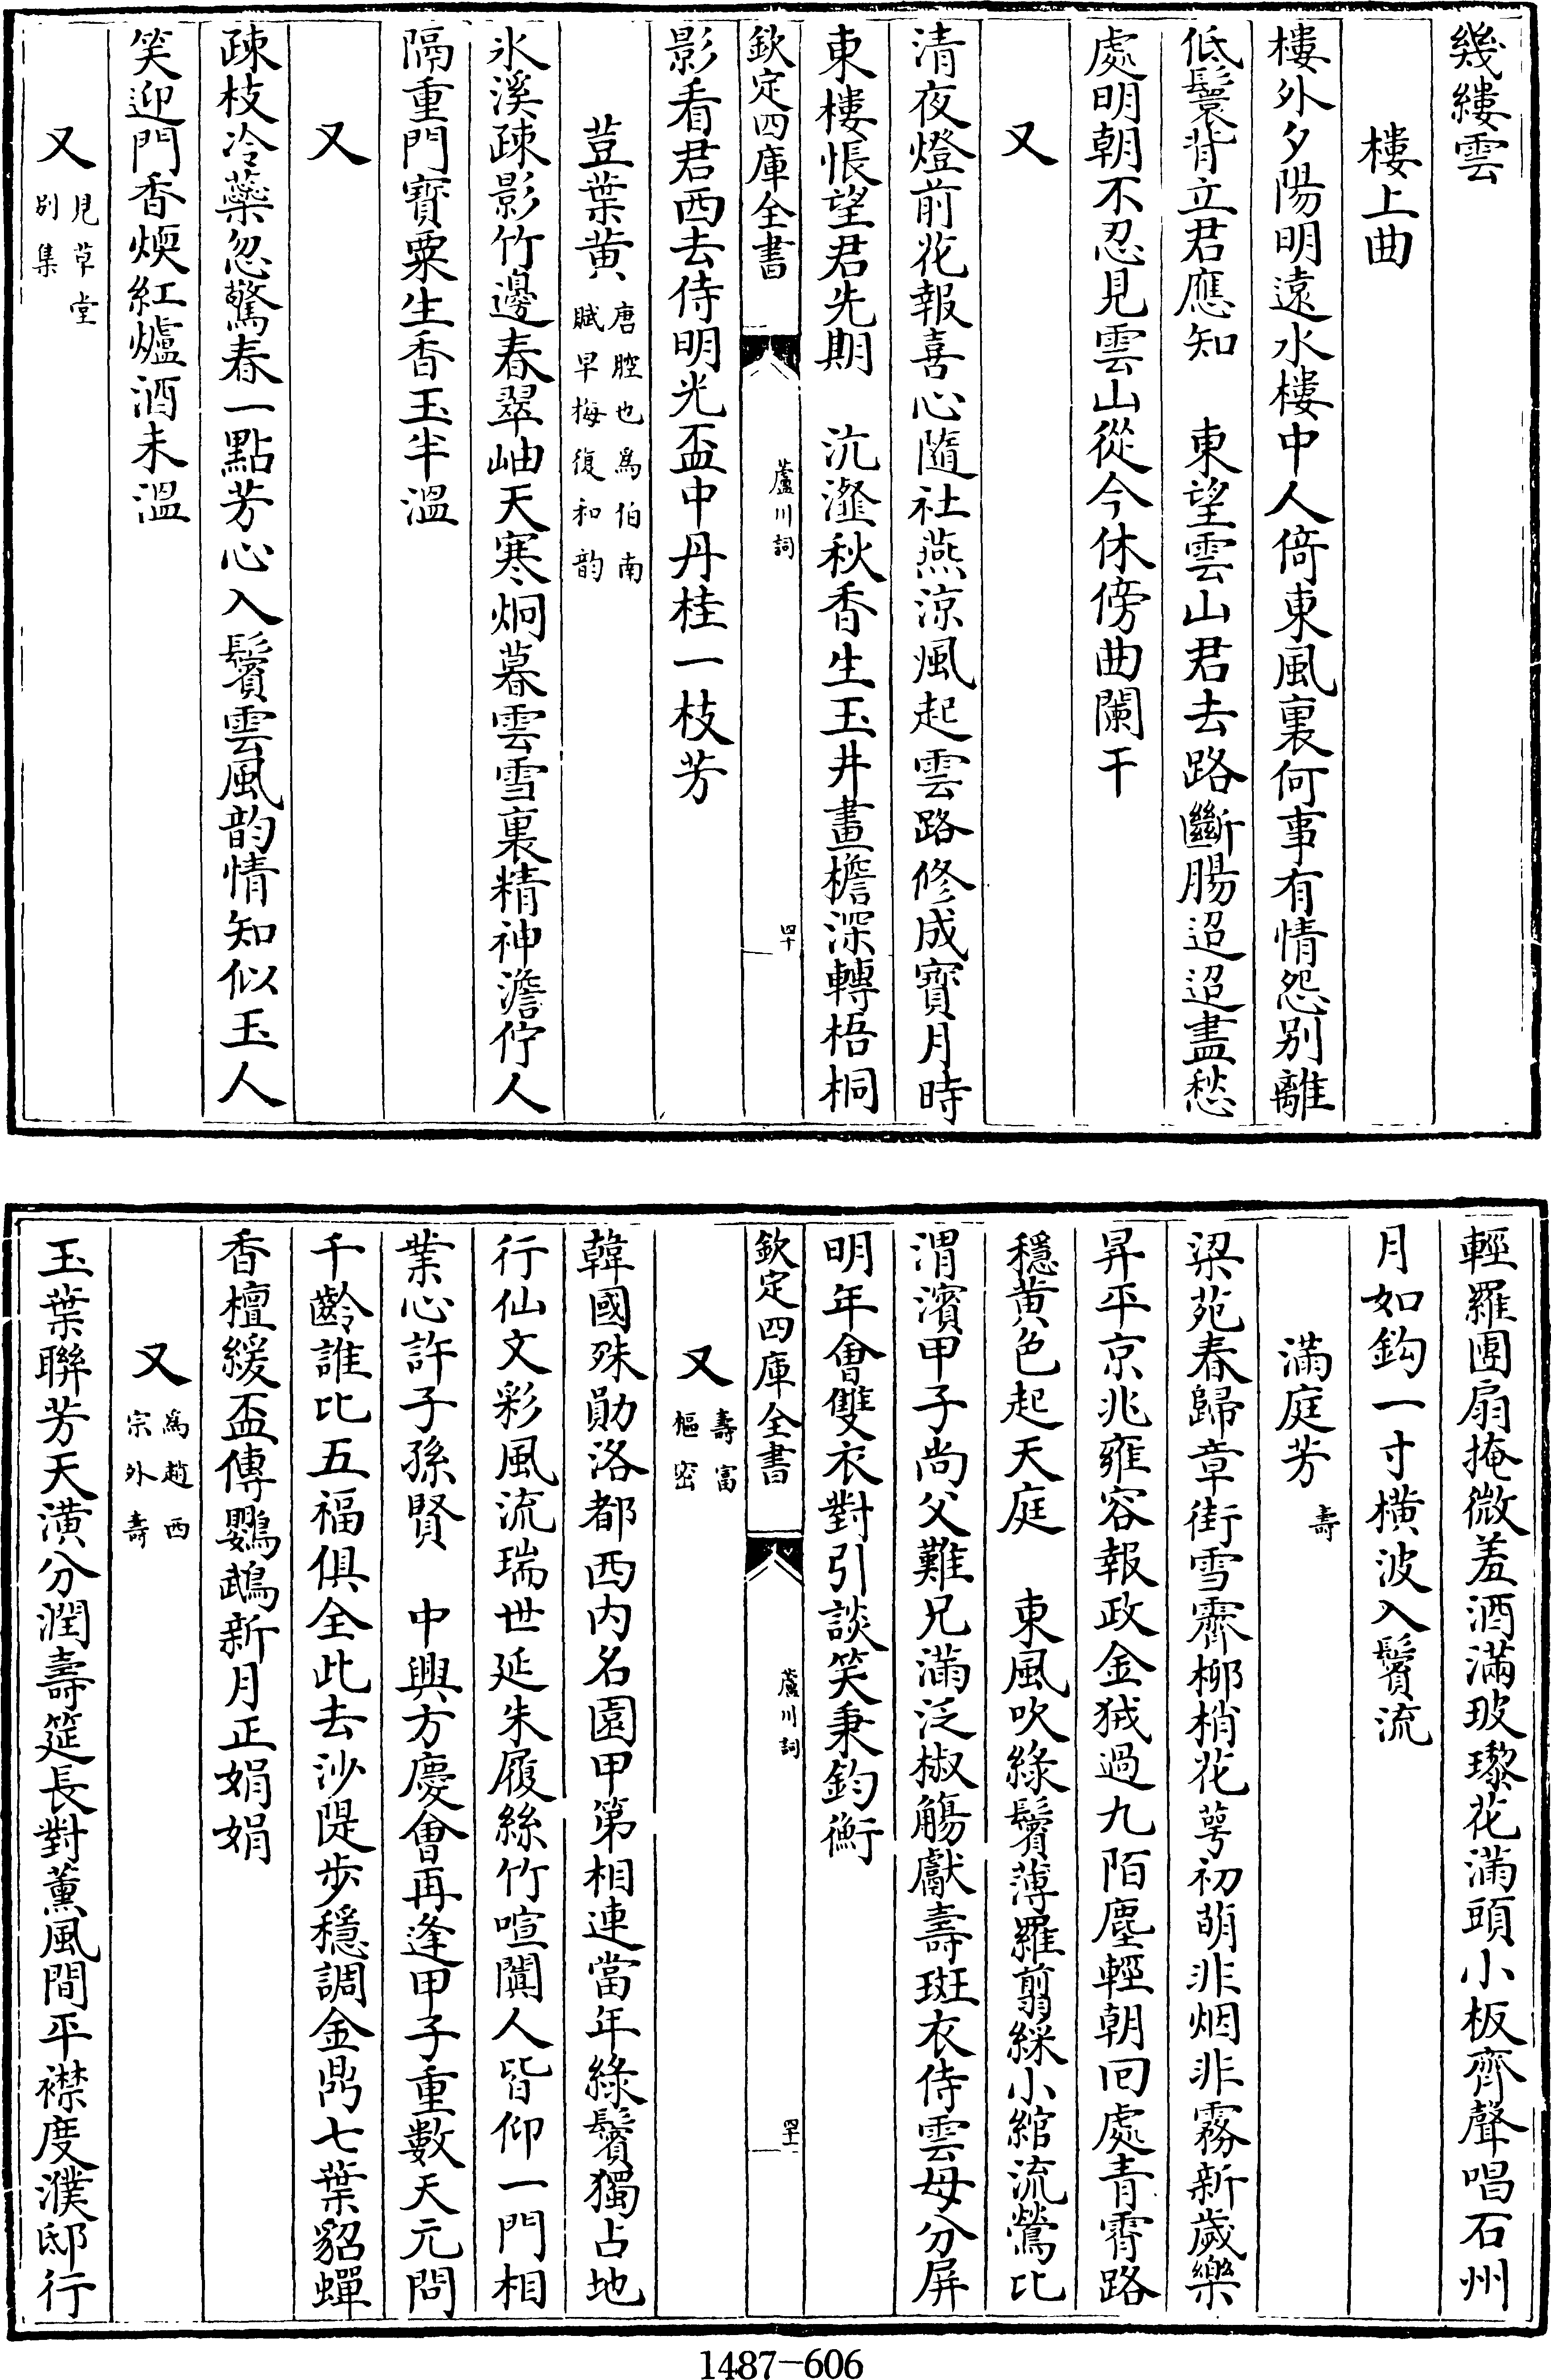 幾縷雲
樓上曲
樓外夕陽明遠水樓中人倚東風裏何事有情怨別離
低鬟背立君應知　東望雲山君去路斷腸迢迢盡愁
處明朝不忍見雲山從今休傍曲闌干
又
清夜燈前花報喜心隨社燕涼風起雲路修成寳月時
東樓悵望君先期　沆瀣秋香生玉井畫檐深轉梧桐
欽定四庫全書
蘆川詞
四十
影看君西去侍明光盃中丹桂一枝芳
荳葉黄唐腔也為伯南
賦早梅復和韵
氷溪疎影竹邊春翠岫天寒炯暮雲雪裏精神澹佇人
隔重門寳粟生香玉半溫
又
疎枝冷蘂忽驚春一點芳心入鬢雲風韵情知似玉人
笑迎門香煗紅爐酒未溫
又見草堂
别集
輕羅團扇掩微羞酒滿玻瓈花滿頭小板齊聲唱石州
月如鈎一寸橫波入鬢流
滿庭芳壽
梁苑春歸章街雪霽柳梢花萼初萌非烟非霧新歲樂
昇平京兆雍容報政金狨過九陌塵輕朝回處青霄路
穩黄色起天庭　東風吹綠鬢薄羅翦綵小綰流鶯比
渭濱甲子尚父難兄滿泛椒觴獻壽斑衣侍雲母分屏
明年會雙衣對引談笑秉鈞衡
欽定四庫全書
蘆川詞
四十一
又壽富
樞密
韓國殊勛洛都西内名園甲第相連當年綠鬢獨占地
行仙文彩風流瑞世延朱履絲竹喧闐人皆仰一門相
業心許子孫賢　中興方慶會再逢甲子重數天元問
千齡誰比五福俱全此去沙隄步穩調金鼎七葉貂蟬
香檀緩盃傳鸚鵡新月正娟娟
又為趙西
宗外壽
玉葉聯芳天潢分潤壽筵長對薰風間平襟度濮邸行
1487-606